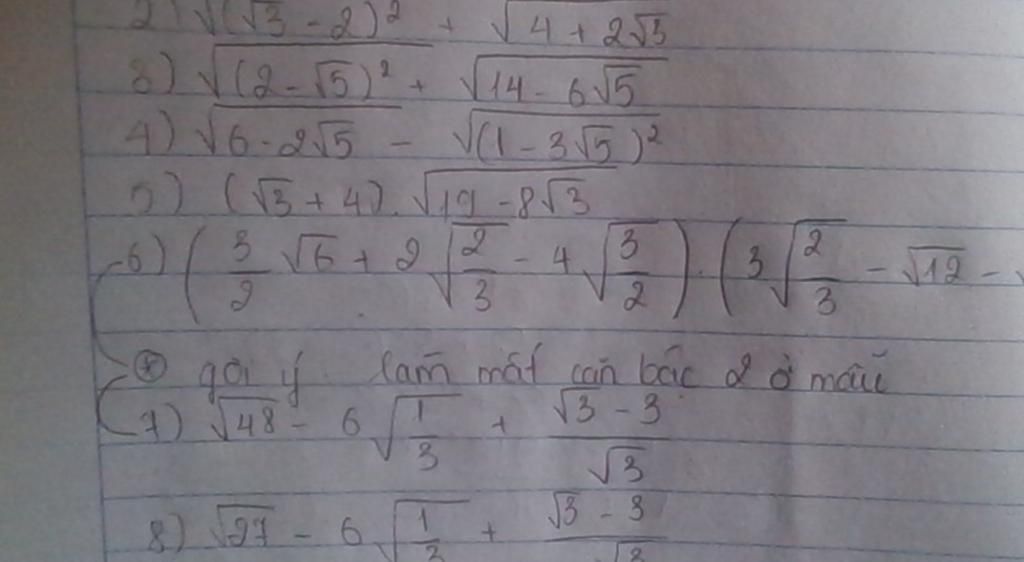 2) √(√3 - 2)² + √4 + 2√3
3) √(2 - √5)² + √14 - 6√5
4) √6 - 2√5 - √(1 - 3√5)²
5) (√3 + 4).√19 - 8√3
6) (3/2 √6 + 2√2/3 - 4√3/2).(3√2/3 - √12 -
* gợi ý làm mất căn bậc 2 ở mẫu
7) √48 - 6√1/3 + √3 - 3/√3
8) √27 - 6√1/3 + √3 - 3/√3